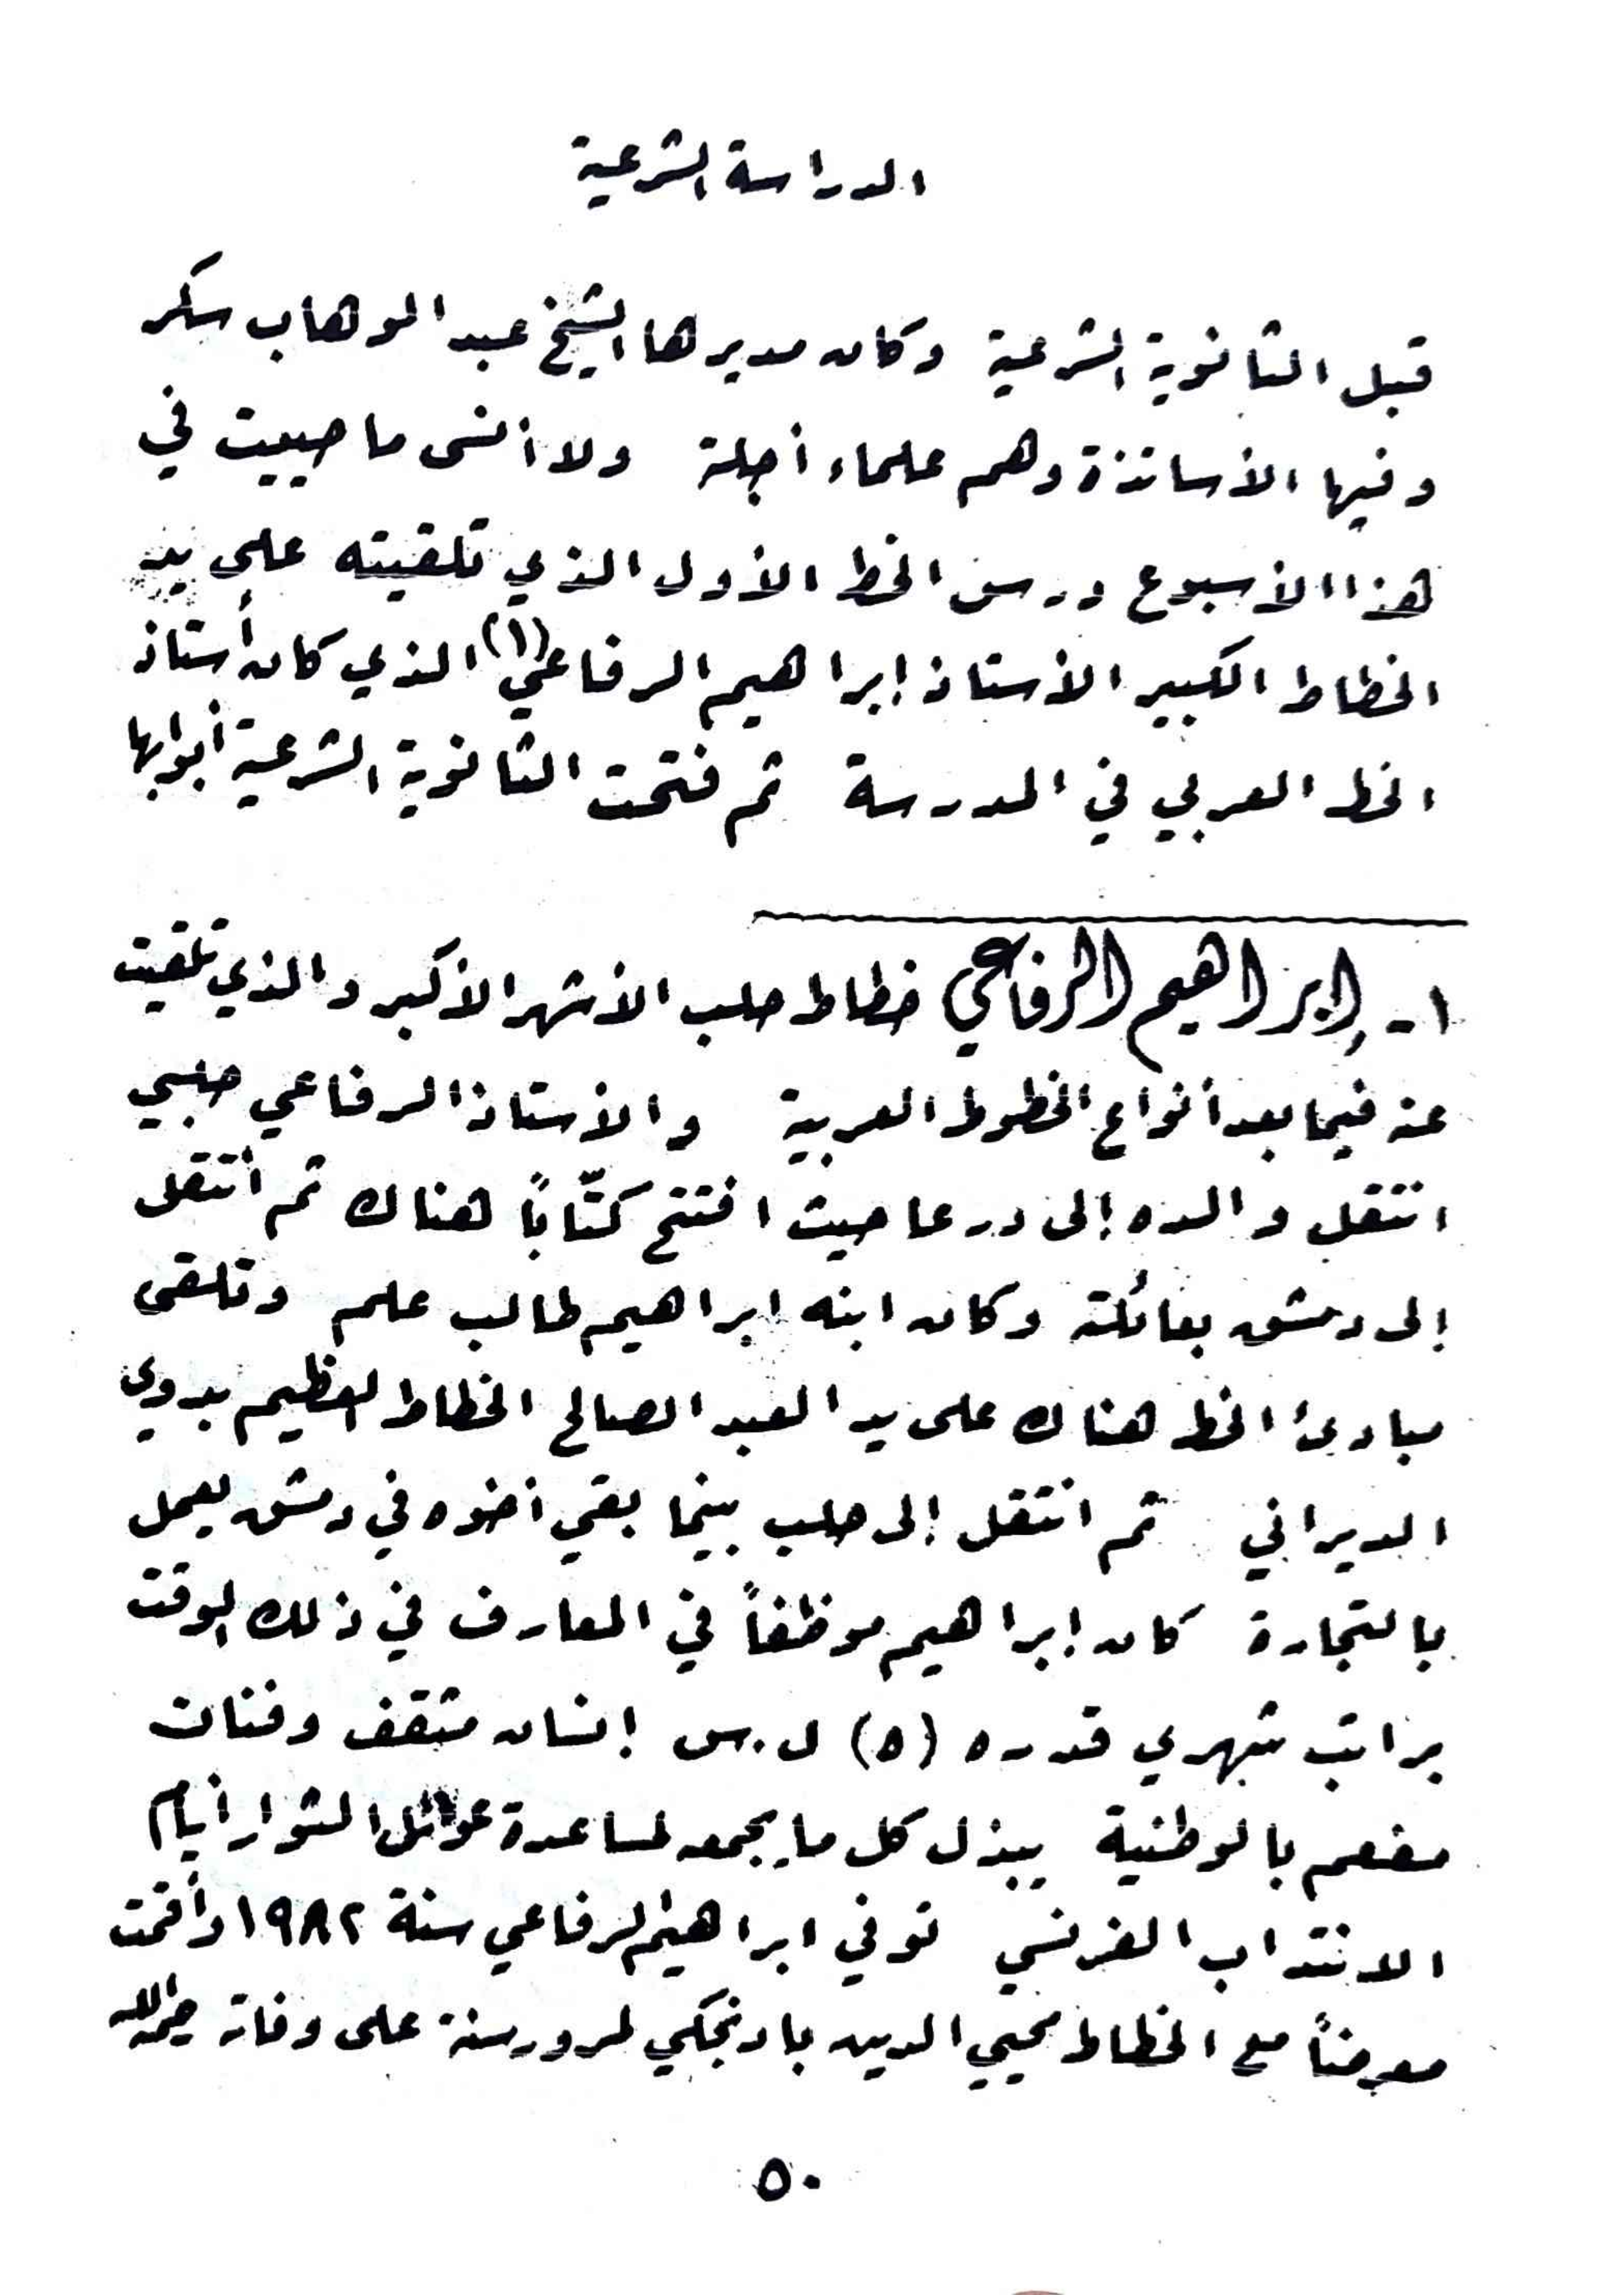 الدراسة الشرعية
قبل الثانوية الشرعية وكان مديرها الشيخ عبد الوهاب سكر
وفيها الأساتذة وهم علماء أجلة ولا أنسى ما حييت في
هذا الأسبوع درس الخط الأول الذي تلقيته على يد
الخطاط الكبير الأستاذ إبراهيم الرفاعي (١) الذي كان أستاذ
الخط العربي في المدرسة ثم فتحت الثانوية الشرعية أبوابها
١- إبراهيم الرفاعي خطاط حلب الأشهر الأكبر والذي تلقيت
عنه فيما بعد أنواع الخطوط العربية والأستاذ الرفاعي حلبي
انتقل والده إلى درعا حيث افتتح كتّاباً هناك ثم انتقل
إلى دمشق بعائلته وكان ابنه ابراهيم طالب علم وتلقى
مبادئ الخط هناك على يد العبد الصالح الخطاط العظيم بدوي
الديراني ثم انتقل إلى حلب بينما بقي أخوه في دمشق يعمل
بالتجارة كان إبراهيم موظفاً في المعارف في ذلك الوقت
براتب شهري قدره (٥) ل.س إنسان مثقف وفنان
مفعم بالوطنية يبذل كل ما يجمعه لمساعدة عوائل الثوار أيام
الانتداب الفرنسي توفي ابراهيم الرفاعي سنة ١٩٨٢ وأقمت
معرضاً مع الخطاط محيي الدين بادنجكي لمرور سنة على وفاته رحمه الله
٥٠